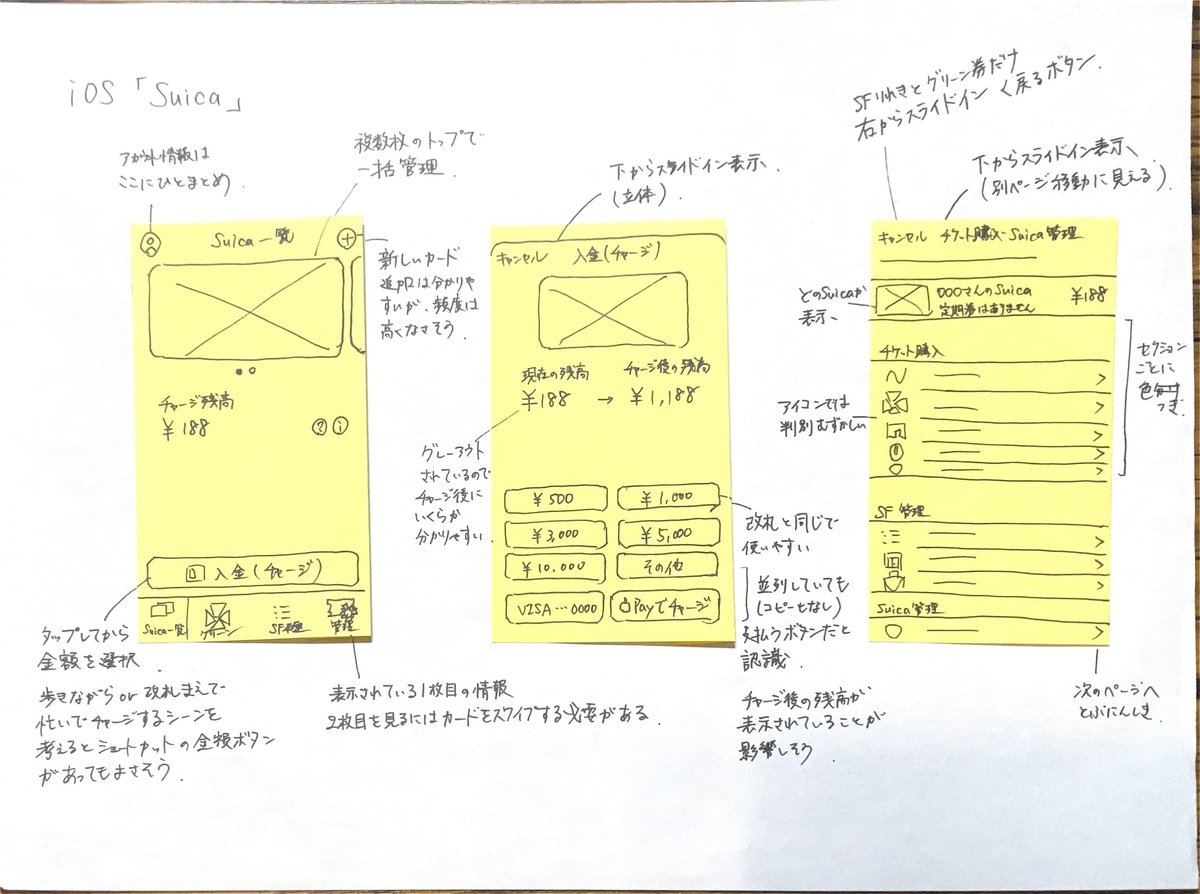 iOS「Suica」
アカウント情報は
ここにひとまとめ.
複数枚のトップで
一括管理.
Suica一覧
新しいカード
追加は分かりや
すいが、頻度は
高くなさそう.
チャージ残高
¥188
? i
入金(チャージ)
Suica一覧
グリーン
SF履歴
管理
タップしてから
金額を選択.
歩きながらor改札まえで
忙いでチャージするシーンを
考えるとショートカットの金額ボタン
があってもよさそう.
表示されている1枚目の情報
2枚目を見るにはカードをスワイプする必要がある.
下からスライドイン表示、
(立体).
キャンセル 入金(チャージ)
現在の残高 チャージ後の残高
¥188 → ¥1,188
グレーアウト
されているので
チャージ後に
いくらか
分かりやすい.
¥500 ¥1,000
¥3,000 ¥5,000
¥10,000 その他
VISA…0000 Payでチャージ
改札と同じで
使いやすい
並列していても
(コピーとなし)
支払うボタンだと
認識.
チャージ後の残高が
表示されていることが
影響しそう
SFりれきとグリーン券だけ
右からスライドイン く戻るボタン.
下からスライドイン表示、
(別ページ移動に見える).
キャンセル チケット購入・Suica管理
どのSuicaか
表示、
○○○さんのSuica ¥188
定期券はありません
チケット購入
アイコンでは
判別むずかしい
セクション
ごとに
色つき.
SF管理
Suica管理
次のページへ
とぶにんしき.